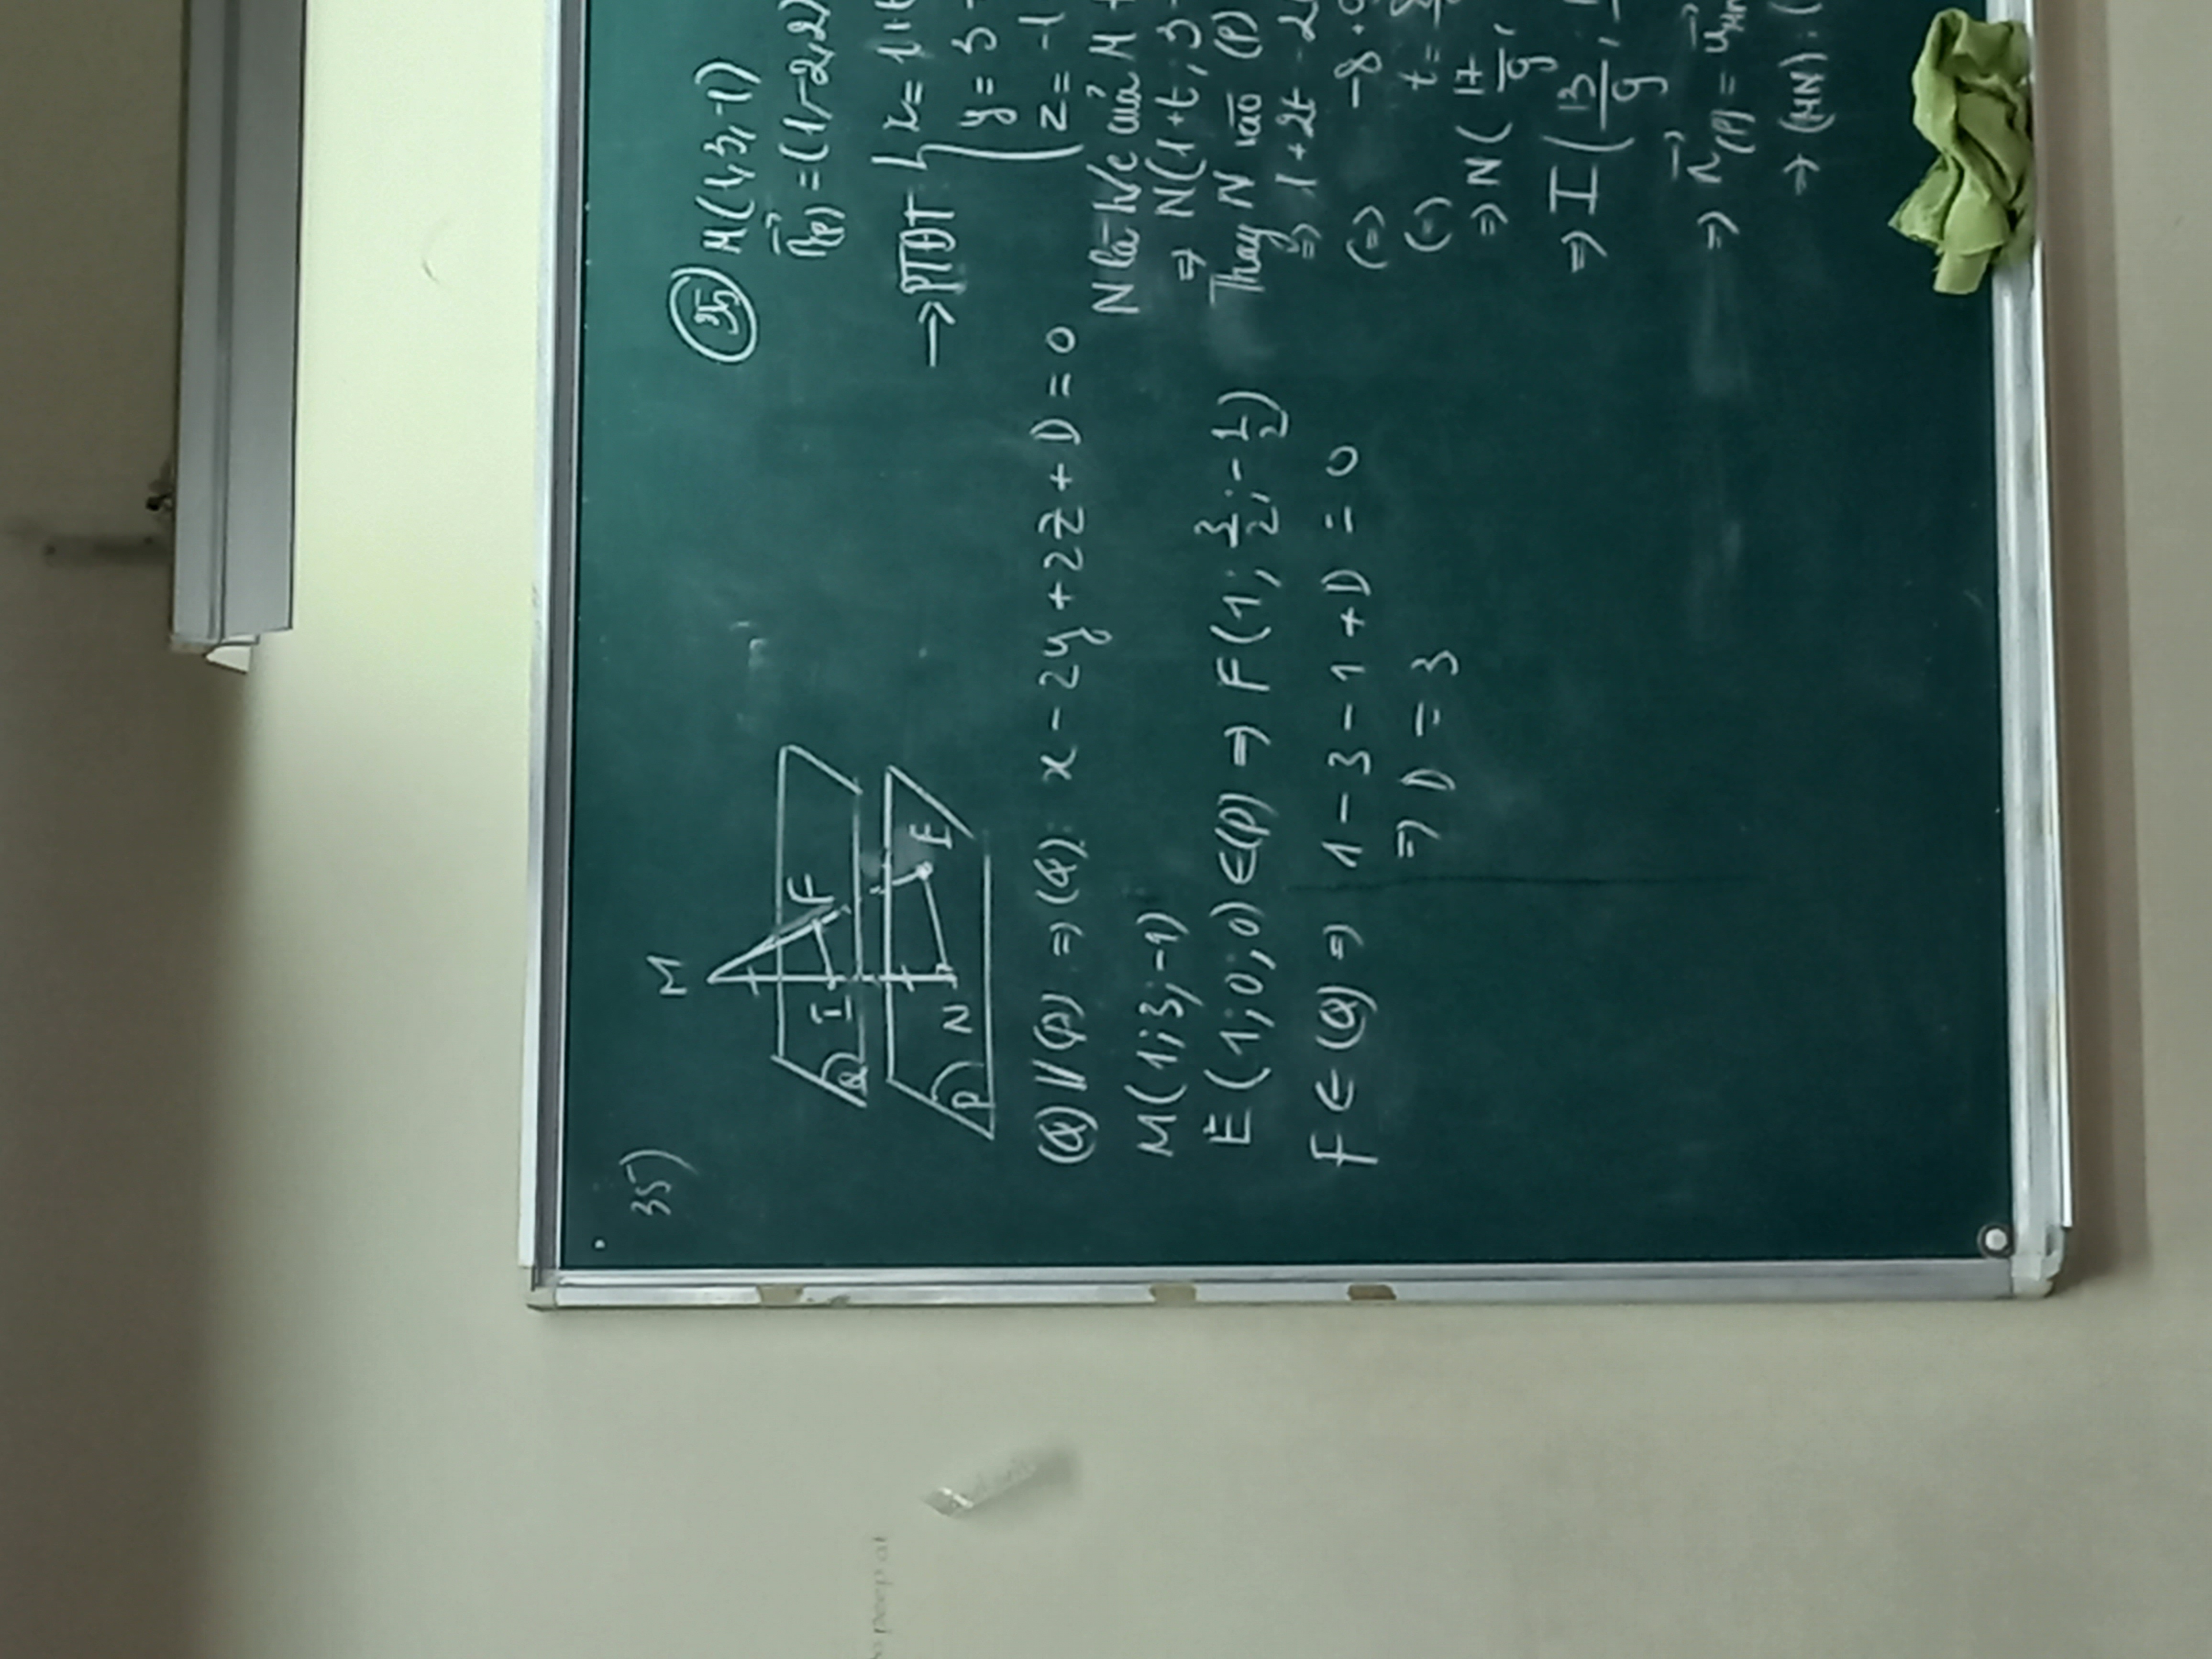 35)
M
I F
Q
N E
P
(Q) // (P) ⇒ (Q): x - 2y + 2z + D = 0
M(1; 3; -1)
E(1; 0; 0) ∈ (P) ⇒ F(1; 3/2; -1/2)
F ∈ (Q) ⇒ 1 - 3 - 1 + D = 0
⇒ D = 3
35 M(1, 3, -1)
n⃗(P) = (1, -2, 2)
→ PTĐT { x = 1 + t
y = 3 -
z = -1
N là h/c của M
⇒ N(1+t, 3 -
Thay N vào (P)
⇒ 1 + 2t - 2
(=) -8 + 9
(=) t =
⇒ N( 17/9,
⇒ I( 13/9,
⇒ n⃗(P) = u⃗
⇒ (MN): (